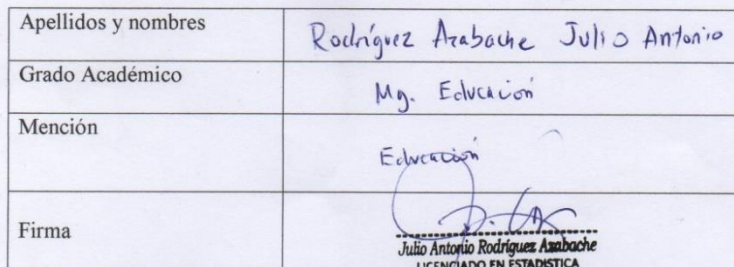 Apellidos y nombres Rodríguez Azabache Julio Antonio
Grado Académico Mg. Educación
Mención Educación
Firma
Julio Antonio Rodríguez Azabache
LICENCIADO EN ESTADISTICA